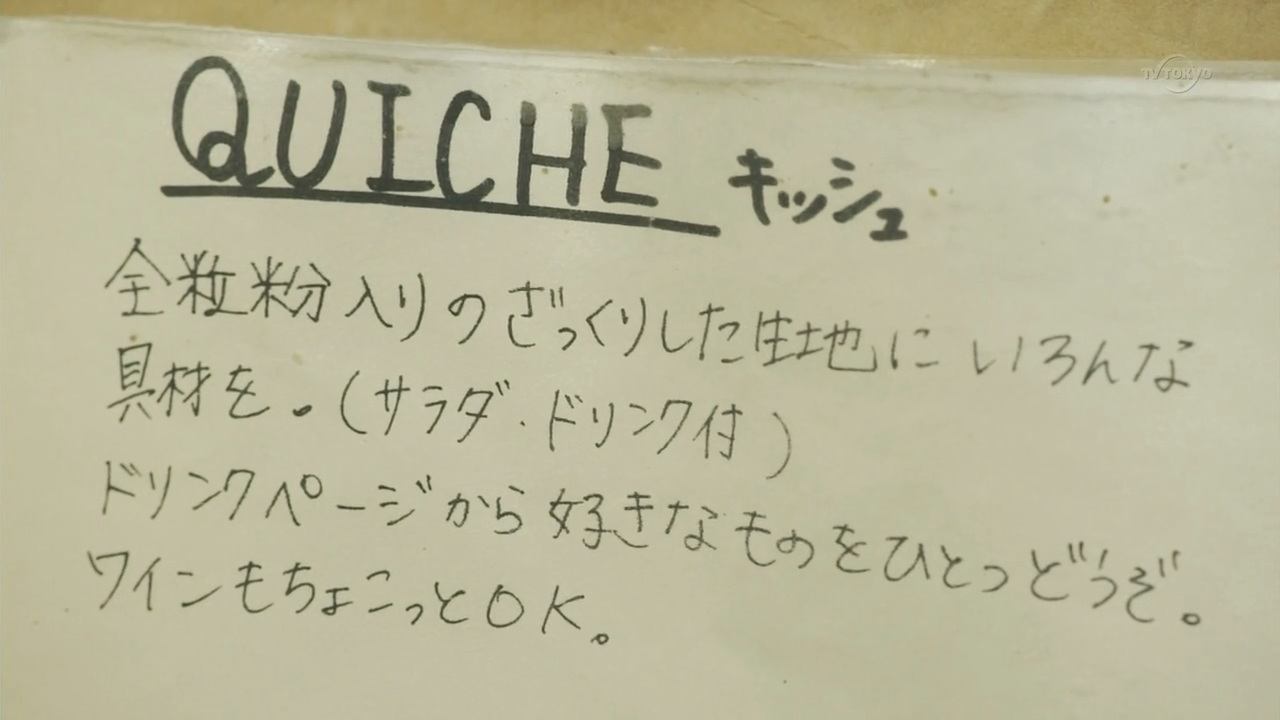 TV TOKYO
QUICHE キッシュ
全粒粉入りのざっくりした生地にいろんな
具材を。(サラダ・ドリンク付)
ドリンクページから好きなものをひとつどうぞ。
ワインもちょこっとOK。